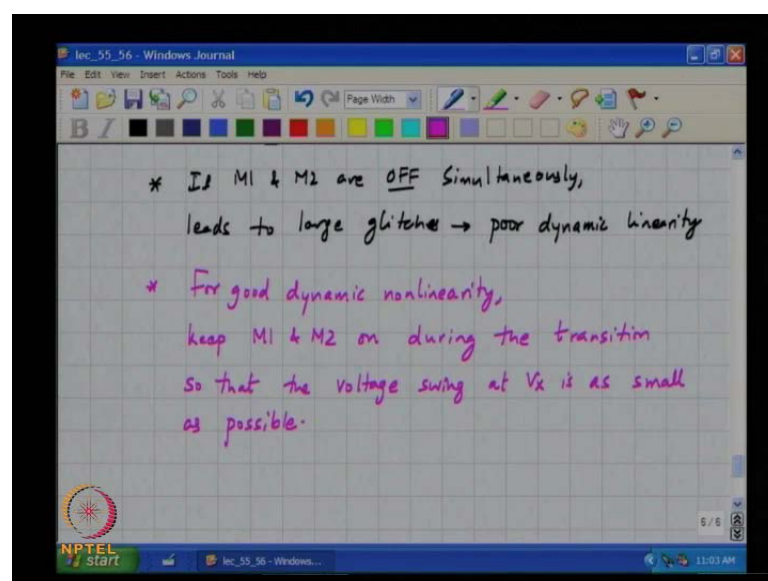 lec_55_56 - Windows Journal
File Edit View Insert Actions Tools Help
Page Width
B I
* If M1 & M2 are OFF Simultaneously,
leads to large glitches → poor dynamic linearity
* For good dynamic nonlinearity,
keep M1 & M2 on during the transition
so that the voltage swing at Vx is as small
as possible.
6/6
NPTEL
start lec_55_56 - Windows... 11:03 AM